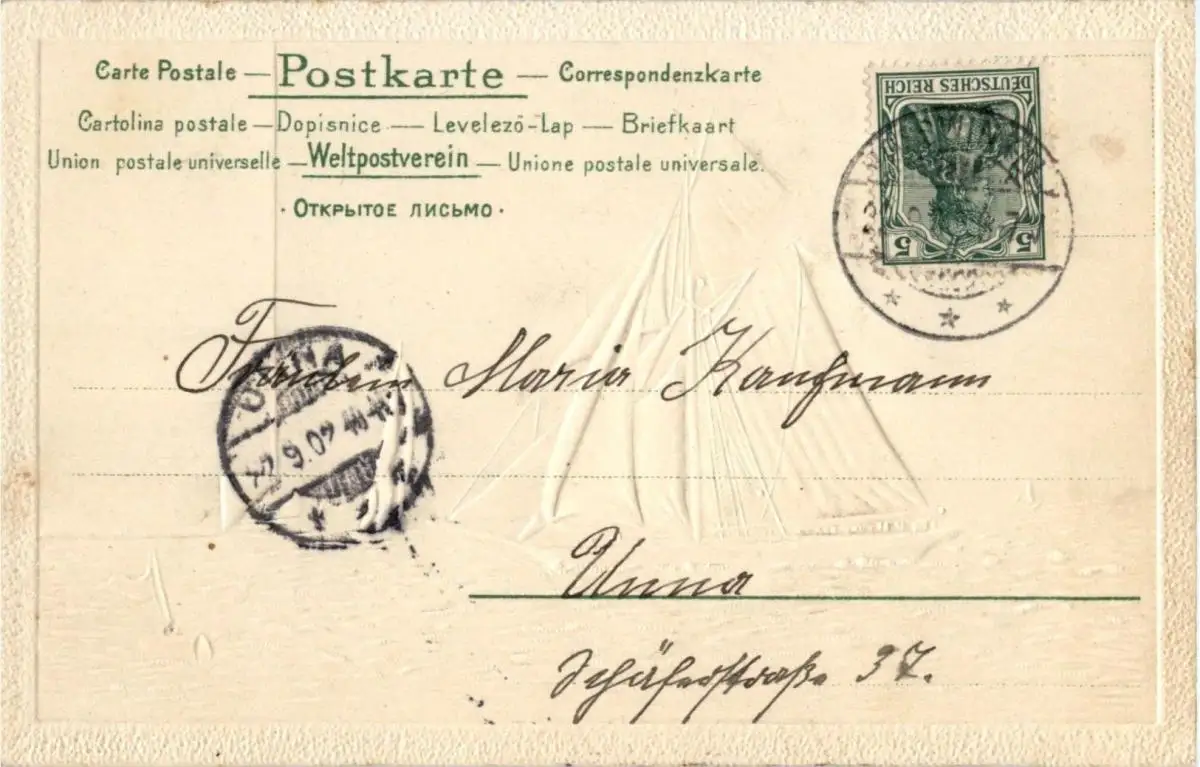 Carte Postale — Postkarte — Correspondenzkarte
Cartolina postale — Dopisnice — Levelező-Lap — Briefkaart
Union postale universelle — Weltpostverein — Unione postale universale.
· Открытое письмо ·
DEUTSCHES REICH
5 5
Fräulein Maria Kaufmann
UNNA
9.02
Unna
Schäferstraße 37.